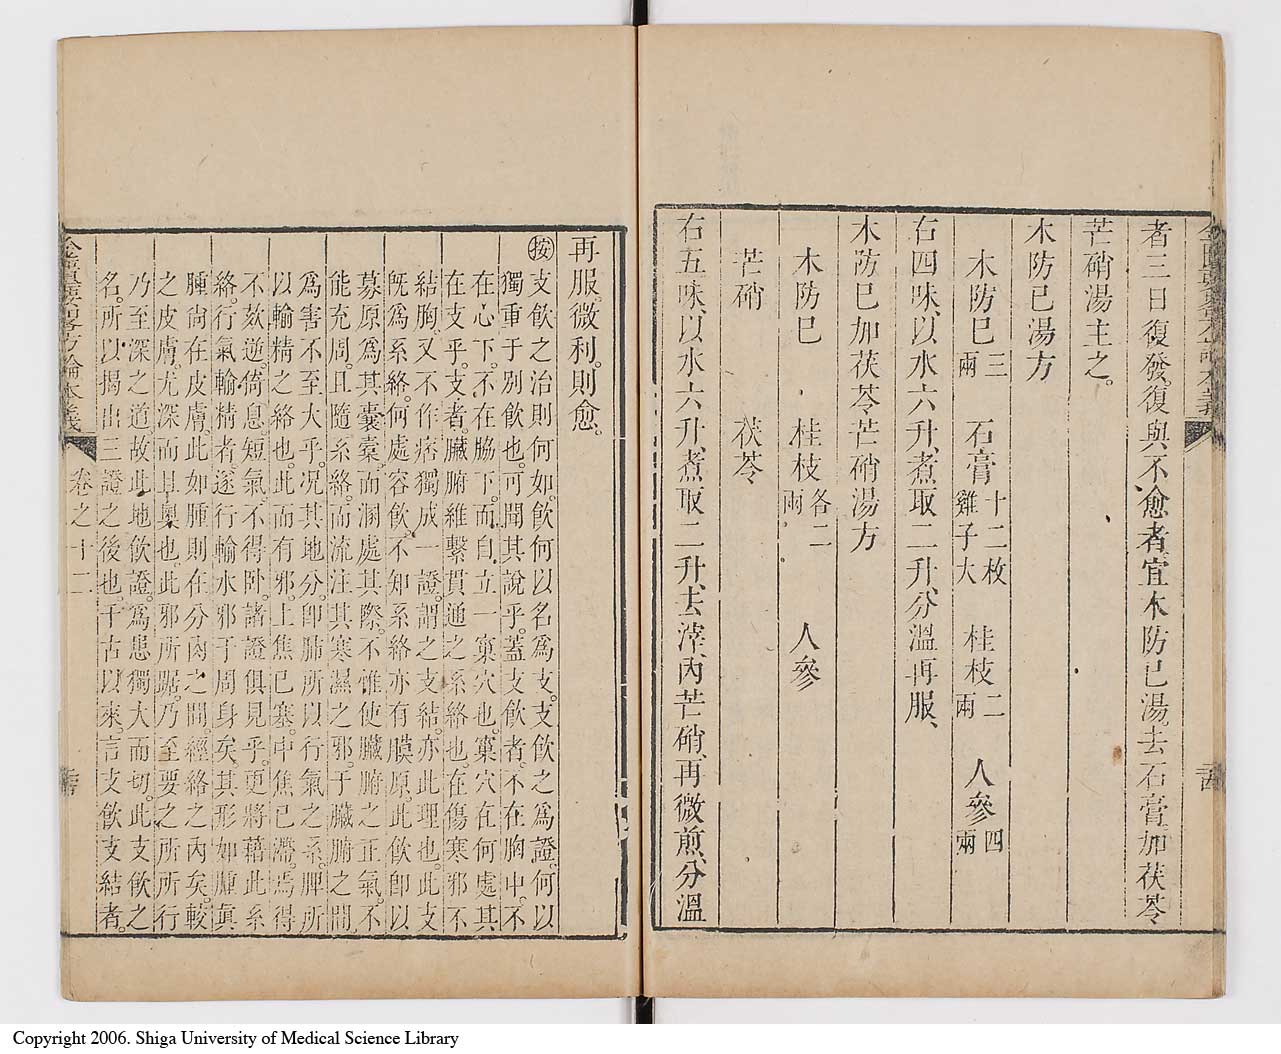 者三日復發復與不愈者宜木防已湯去石膏加茯苓
芒硝湯主之。
木防已湯方
木防已三兩 石膏十二枚雞子大 桂枝二兩 人參四兩
右四味、以水六升、煮取二升、分溫再服、
木防已加茯苓芒硝湯方
木防已 桂枝各二兩 人參
芒硝 茯苓
右五味、以水六升、煮取二升、去滓、內芒硝、再微煎、分溫
再服。微利。則愈。
按支飲之治則何如。飲何以名爲支。支飲之爲證。何以
獨重于別飲也。可聞其說乎。蓋支飲者。不在胸中。不
在心下。不在脇下。而自立一窠穴也。窠穴在何處。其
在支乎。支者。臟腑維繫貫通之系絡也。在傷寒邪不
結胸。又不作痞。獨成一證。謂之支結。亦此理也。此支
旣爲系絡。何處容飲。不知系絡亦有膜原。此飲卽以
募原爲其囊橐。而溷處其際。不惟使臟腑之正氣。不
能充周。且隨系絡。而流注其寒濕之邪。于臟腑之間。
爲害不至大乎。况其地分。卽肺所以行氣之系。脾所
以輸精之絡也。此而有邪。上焦已塞。中焦已滯。焉得
不欬逆。倚息。短氣。不得卧。諸證俱見乎。更將藉此系
絡。行氣輸精者。遂行輸水邪于周身矣。其形如腫。眞
腫尙在皮膚。此如腫則在分肉之間。經絡之內矣。較
之皮膚。尤深而且奧也。此邪所踞。乃至要之所。所行
乃至深之道。故此地飲證。爲患獨大而切。此支飲之
名。所以揭出三證之後也。千古以來。言支飲支結者。
金匱要略方論本義
卷之十二